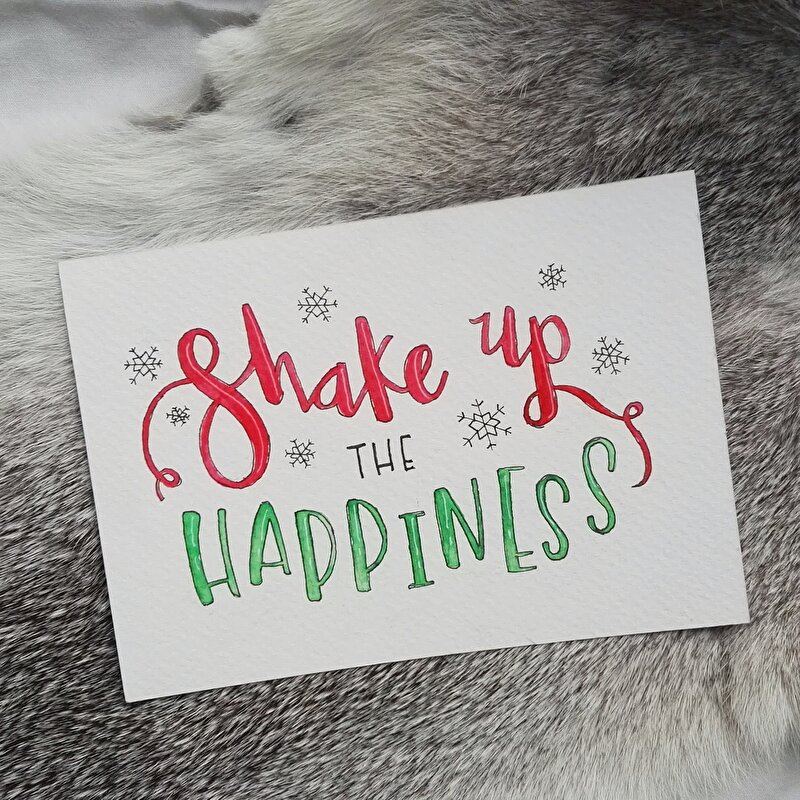 Shake up
THE
HAPPINESS